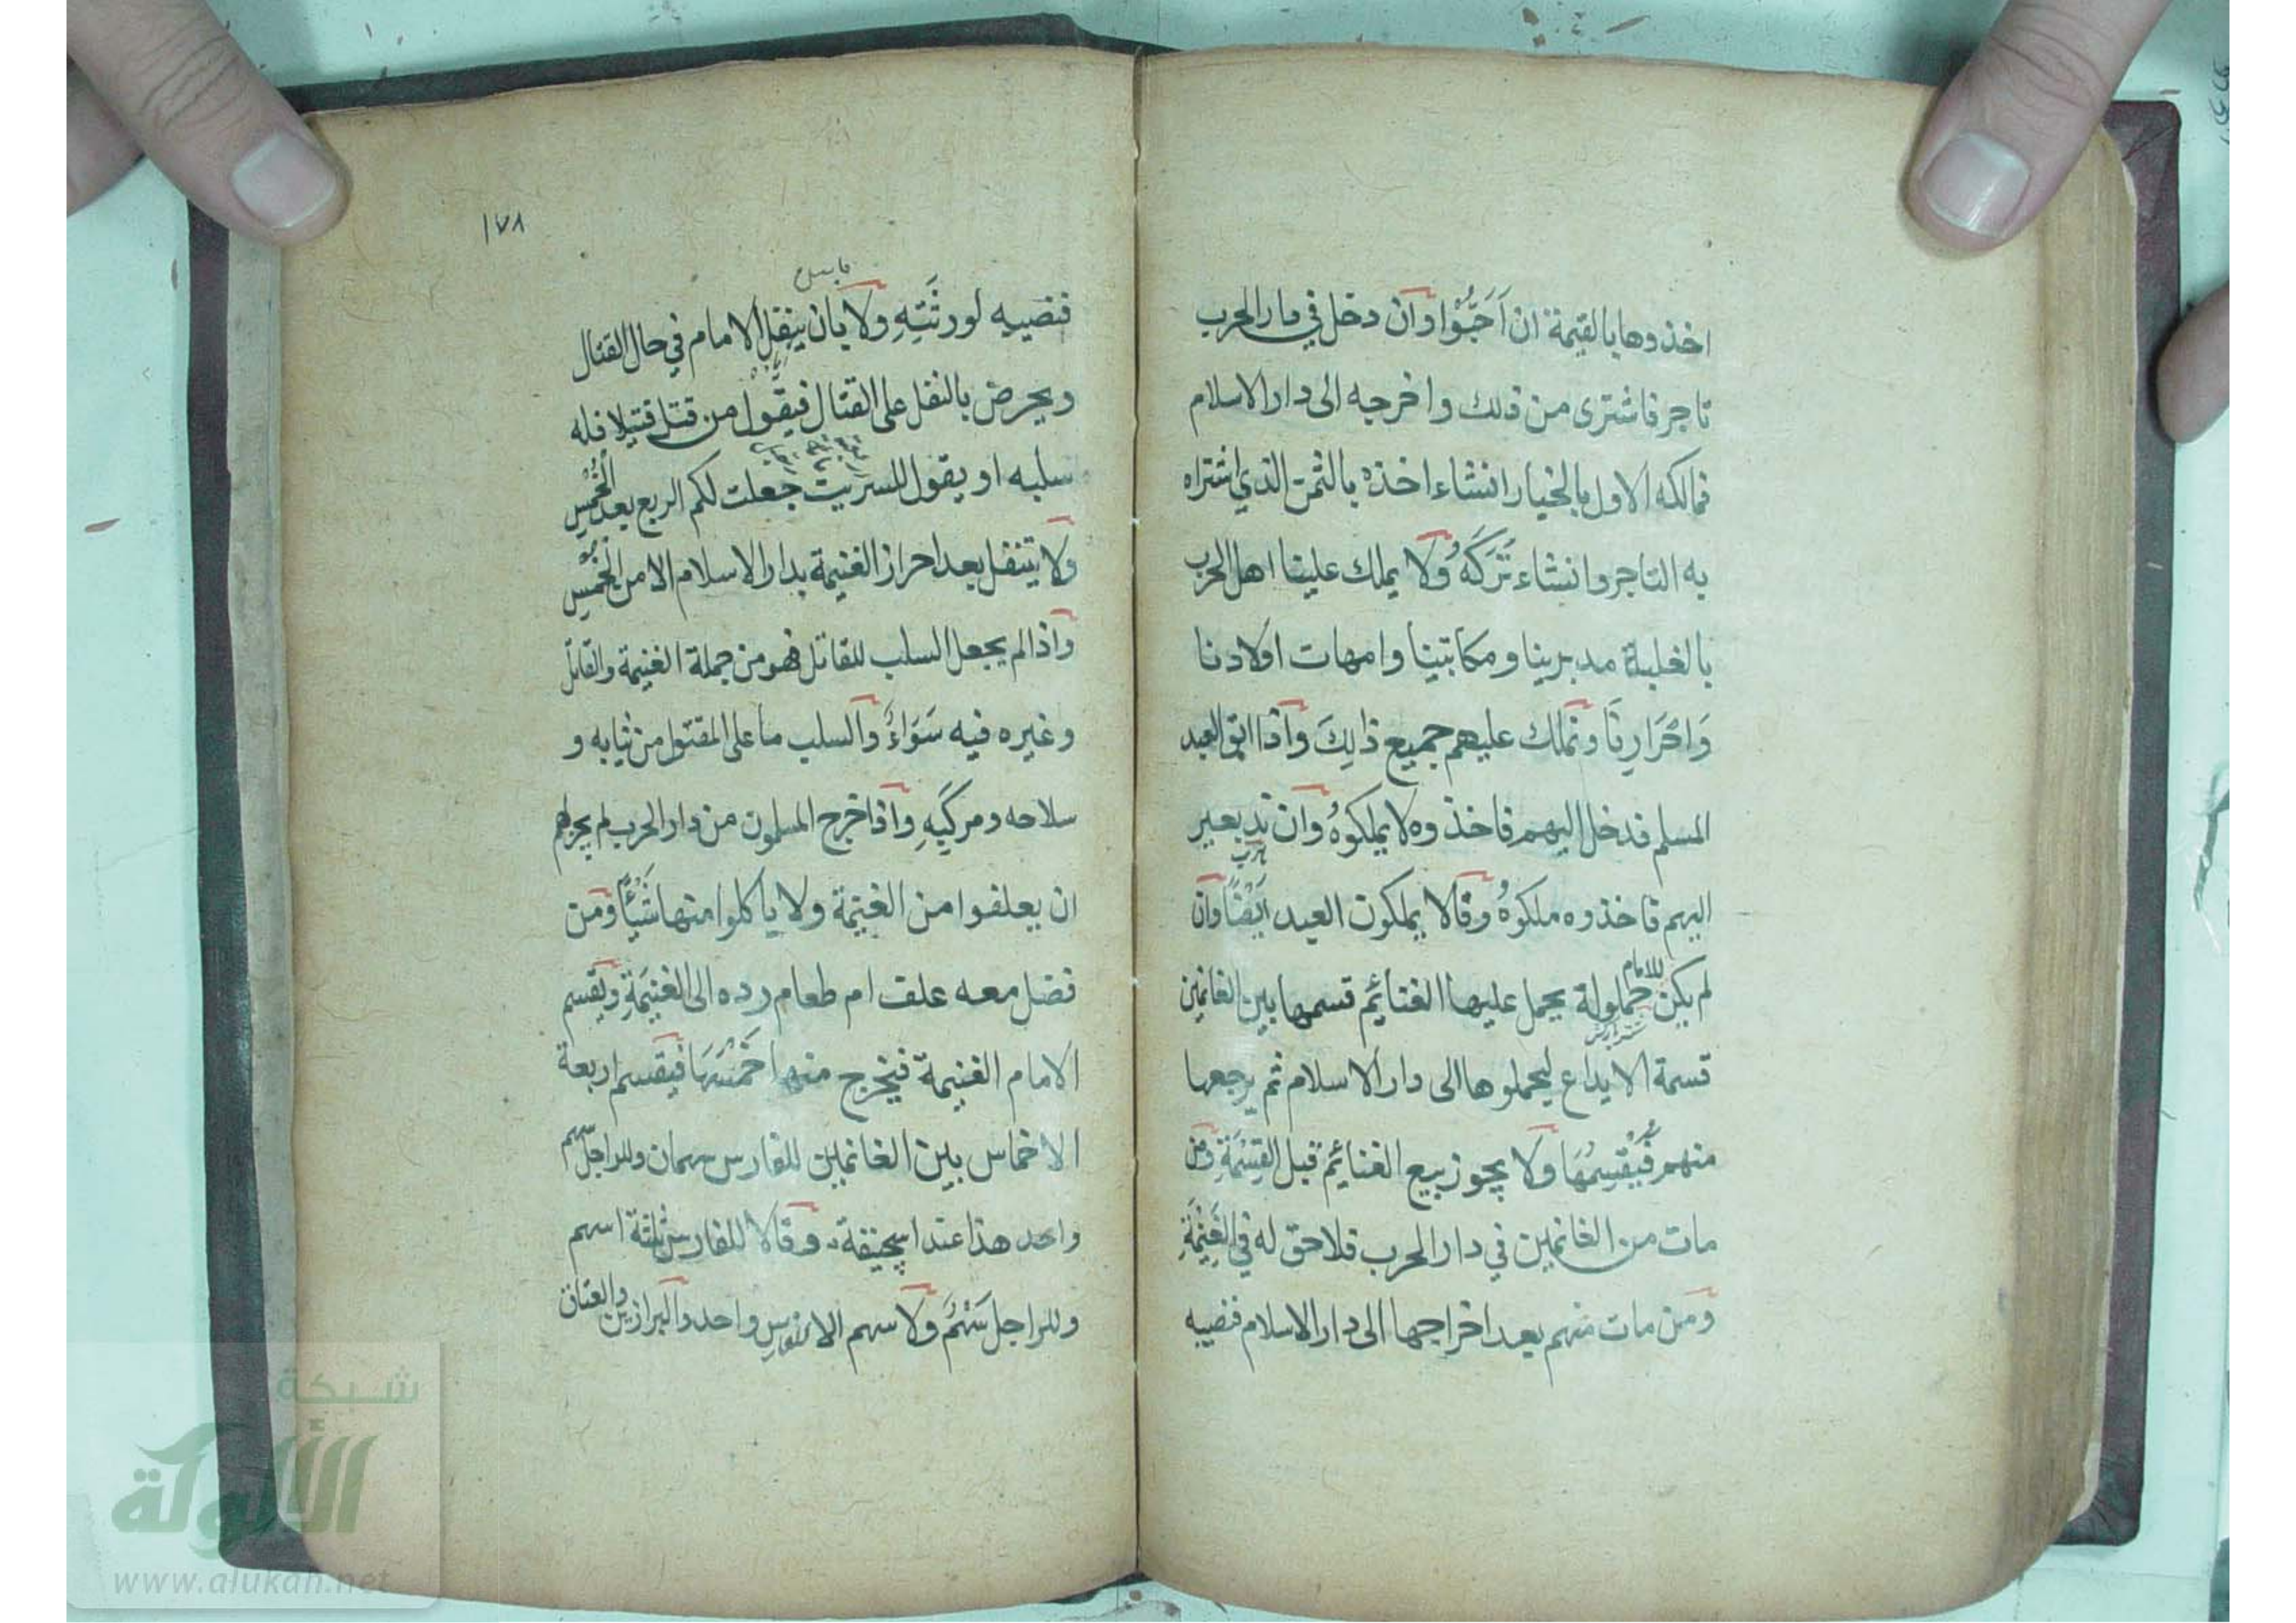 اخذوها بالقيمة ان اَحَبُّوْا وان دخل في دار الحرب
تاجر فاشترى من ذلك واخرجه الى دار الاسلام
فمالكه الاول بالخيار انشاء اخذه بالثمن الذي اشتراه
به التاجر وانشاء تَرَكَهُ ولا يملك علينا اهل الحرب
بالغلبة مدبرينا ومكاتبينا وامهات اولادنا
وَاحْرَارِنَا ونملك عليهم جميع ذلِكَ واذا ابق العبد
المسلم فدخل اليهم فاخذوه لا يملكوهُ وان ند بعير
اليهم فاخذوه ملكوهُ وقالا يملكون العبد اَيْضًا وان
لم يكن للامام حمولة يحمل عليها الغنائم قسمها بين الغانمين
قسمة الايداع ليحملوها الى دار الاسلام ثم يرجعها
منهم فَيُقْسِمُهَا ولا يجوز بيع الغنائم قبل القِسْمَةِ ومن
مات من الغانمين في دار الحرب فلا حق له في الغَنِيْمَةِ
ومن مات منهم بعد اخراجها الى دار الاسلام فنصيبه
١٧٨
فنصيبه لورثَتِهِ ولا بان ينفل الامام في حال القتال
ويحرض بالنفل على القتال فيقول من قتل قتيلا فله
سلبه او يقول للسرية جعلت لكم الربع بعد الخُمُسِ
ولا يتنفل بعد احراز الغنيمة بدار الاسلام الا من الخُمُسِ
واذا لم يجعل السلب للقاتل فهو من جملة الغنيمة والقاتل
وغيره فيه سَوَاءٌ والسلب ما على المقتول من ثيابه و
سلاحه ومركَبِهِ واذا خرج المسلمون من دار الحرب لم يجز لهم
ان يعلفوا من الغنيمة ولا ياكلوا منها شَيْأً ومن
فضل معه علف ام طعام رده الى الغنيمَةِ ويقسم
الامام الغنيمة فيخرج منها خُمُسَهَا فيقسم اربعة
الاخماس بين الغانمين للفارس سهمان وللراجل سهم
واحد هذا عند ابيحنيفة وقالا للفارس ثلثة اسهم
وللراجل سَهْمٌ ولا سهم الا لفرس واحد والبراذين والعتاق
شبكة
الألوكة
www.alukah.net